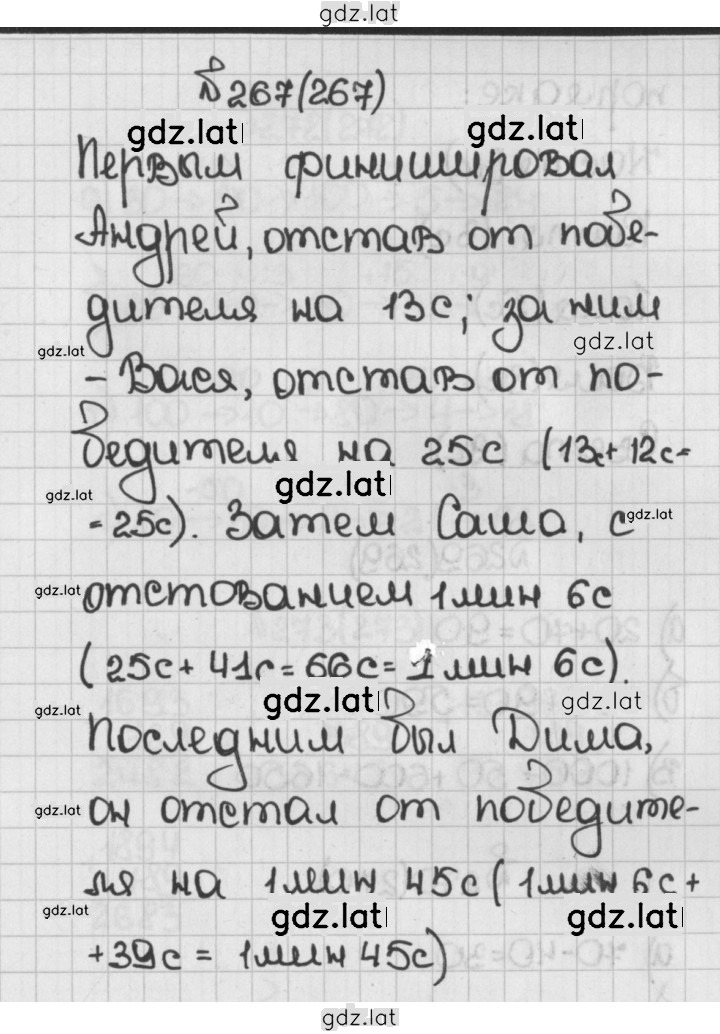 gdz.lat
№267(267)
gdz.lat gdz.lat
Первым финишировал
Андрей, отстав от побе-
дителя на 13с; за ним
gdz.lat gdz.lat
- Вася, отстав от по-
бедителя на 25с (13с+12с=
gdz.lat gdz.lat
=25с). Затем Саша, с gdz.lat
gdz.lat отстованием 1мин 6с
(25с+41с=66с=1мин 6с).
gdz.lat gdz.lat gdz.lat
Последним был Дима,
gdz.lat он отстал от победите-
ля на 1мин 45с (1мин 6с+
gdz.lat gdz.lat gdz.lat
+39с = 1мин 45с)
gdz.lat